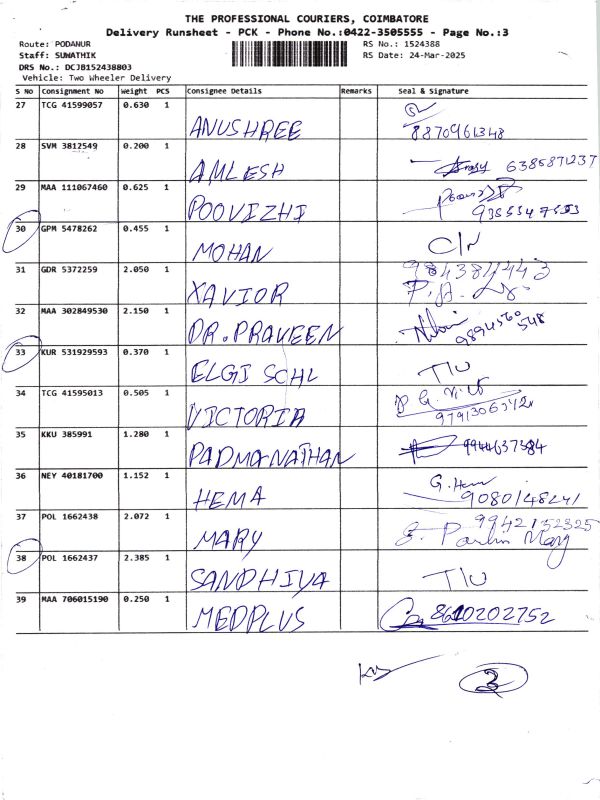 THE PROFESSIONAL COURIERS, COIMBATORE
Delivery Runsheet - PCK - Phone No.:0422-3505555 - Page No.:3
Route: PODANUR RS No.: 1524388
Staff: SUWATHIK RS Date: 24-Mar-2025
DRS No.: DCJB152438803
Vehicle: Two Wheeler Delivery
S No Consignment No Weight PCS Consignee Details Remarks Seal & Signature
27 TCG 41599057 0.630 1 ANUSHREE 8870961348
28 SVM 3812549 0.200 1 AMLESH 6385871237
29 MAA 111067460 0.625 1 POOVIZHI
30 GPM 5478262 0.455 1 MOHAN C/N
31 GDR 5372259 2.050 1 XAVIOR 9843814443
32 MAA 302849530 2.150 1 DR.PRAVEEN 9894560548
33 KUR 531929593 0.370 1 ELGI SCHL T/U
34 TCG 41595013 0.505 1 VICTORIA
35 KKU 385991 1.280 1 PADMANATHAN 9944637384
36 NEY 40181700 1.152 1 HEMA G. Hem
37 POL 1662438 2.072 1 MARY 9942152325
38 POL 1662437 2.385 1 SANDHIYA T/U
39 MAA 706015190 0.250 1 MEDPLUS 8610202752
3